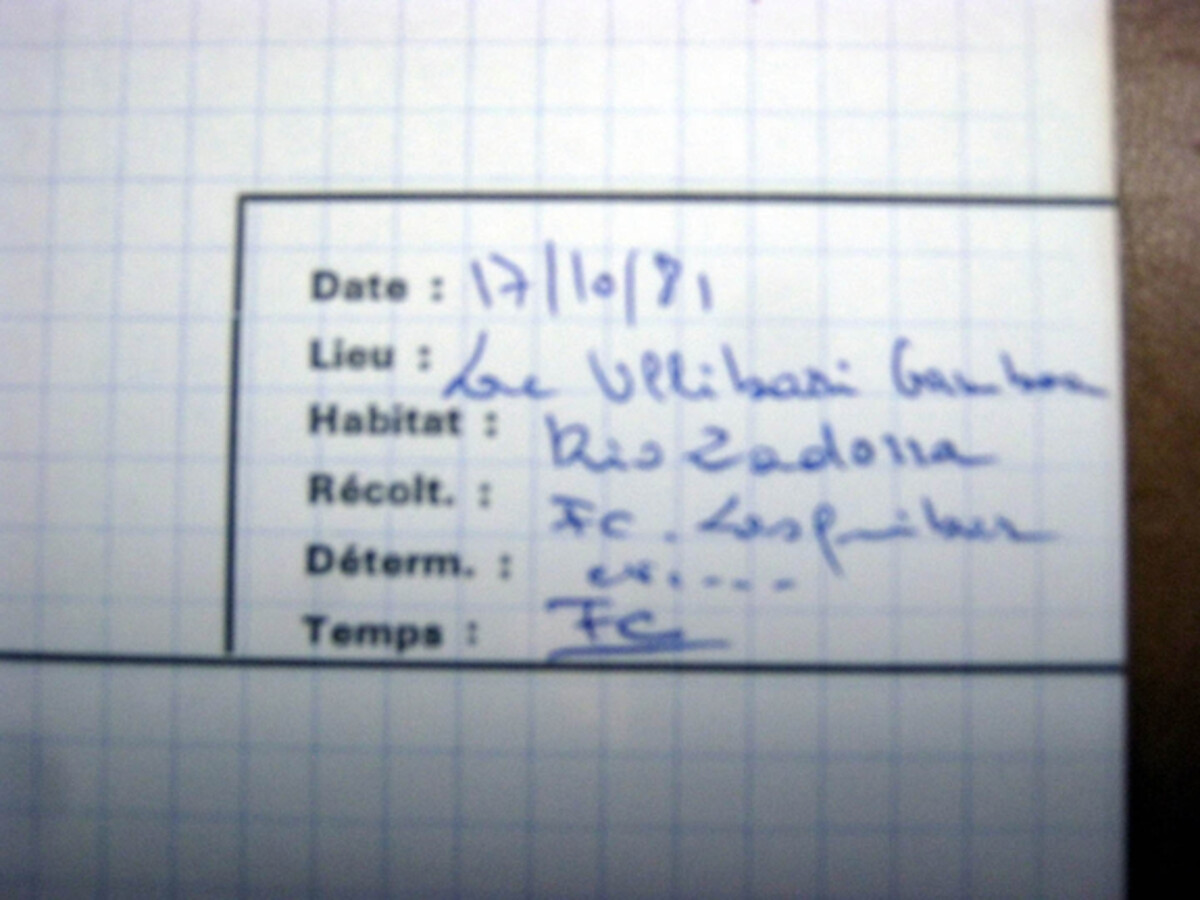 Date : 17/10/81
Lieu : Lac Ullibari Gamboa
Habitat : Rio Zadorra
Récolt. : FC.
Déterm. :
Temps : FC